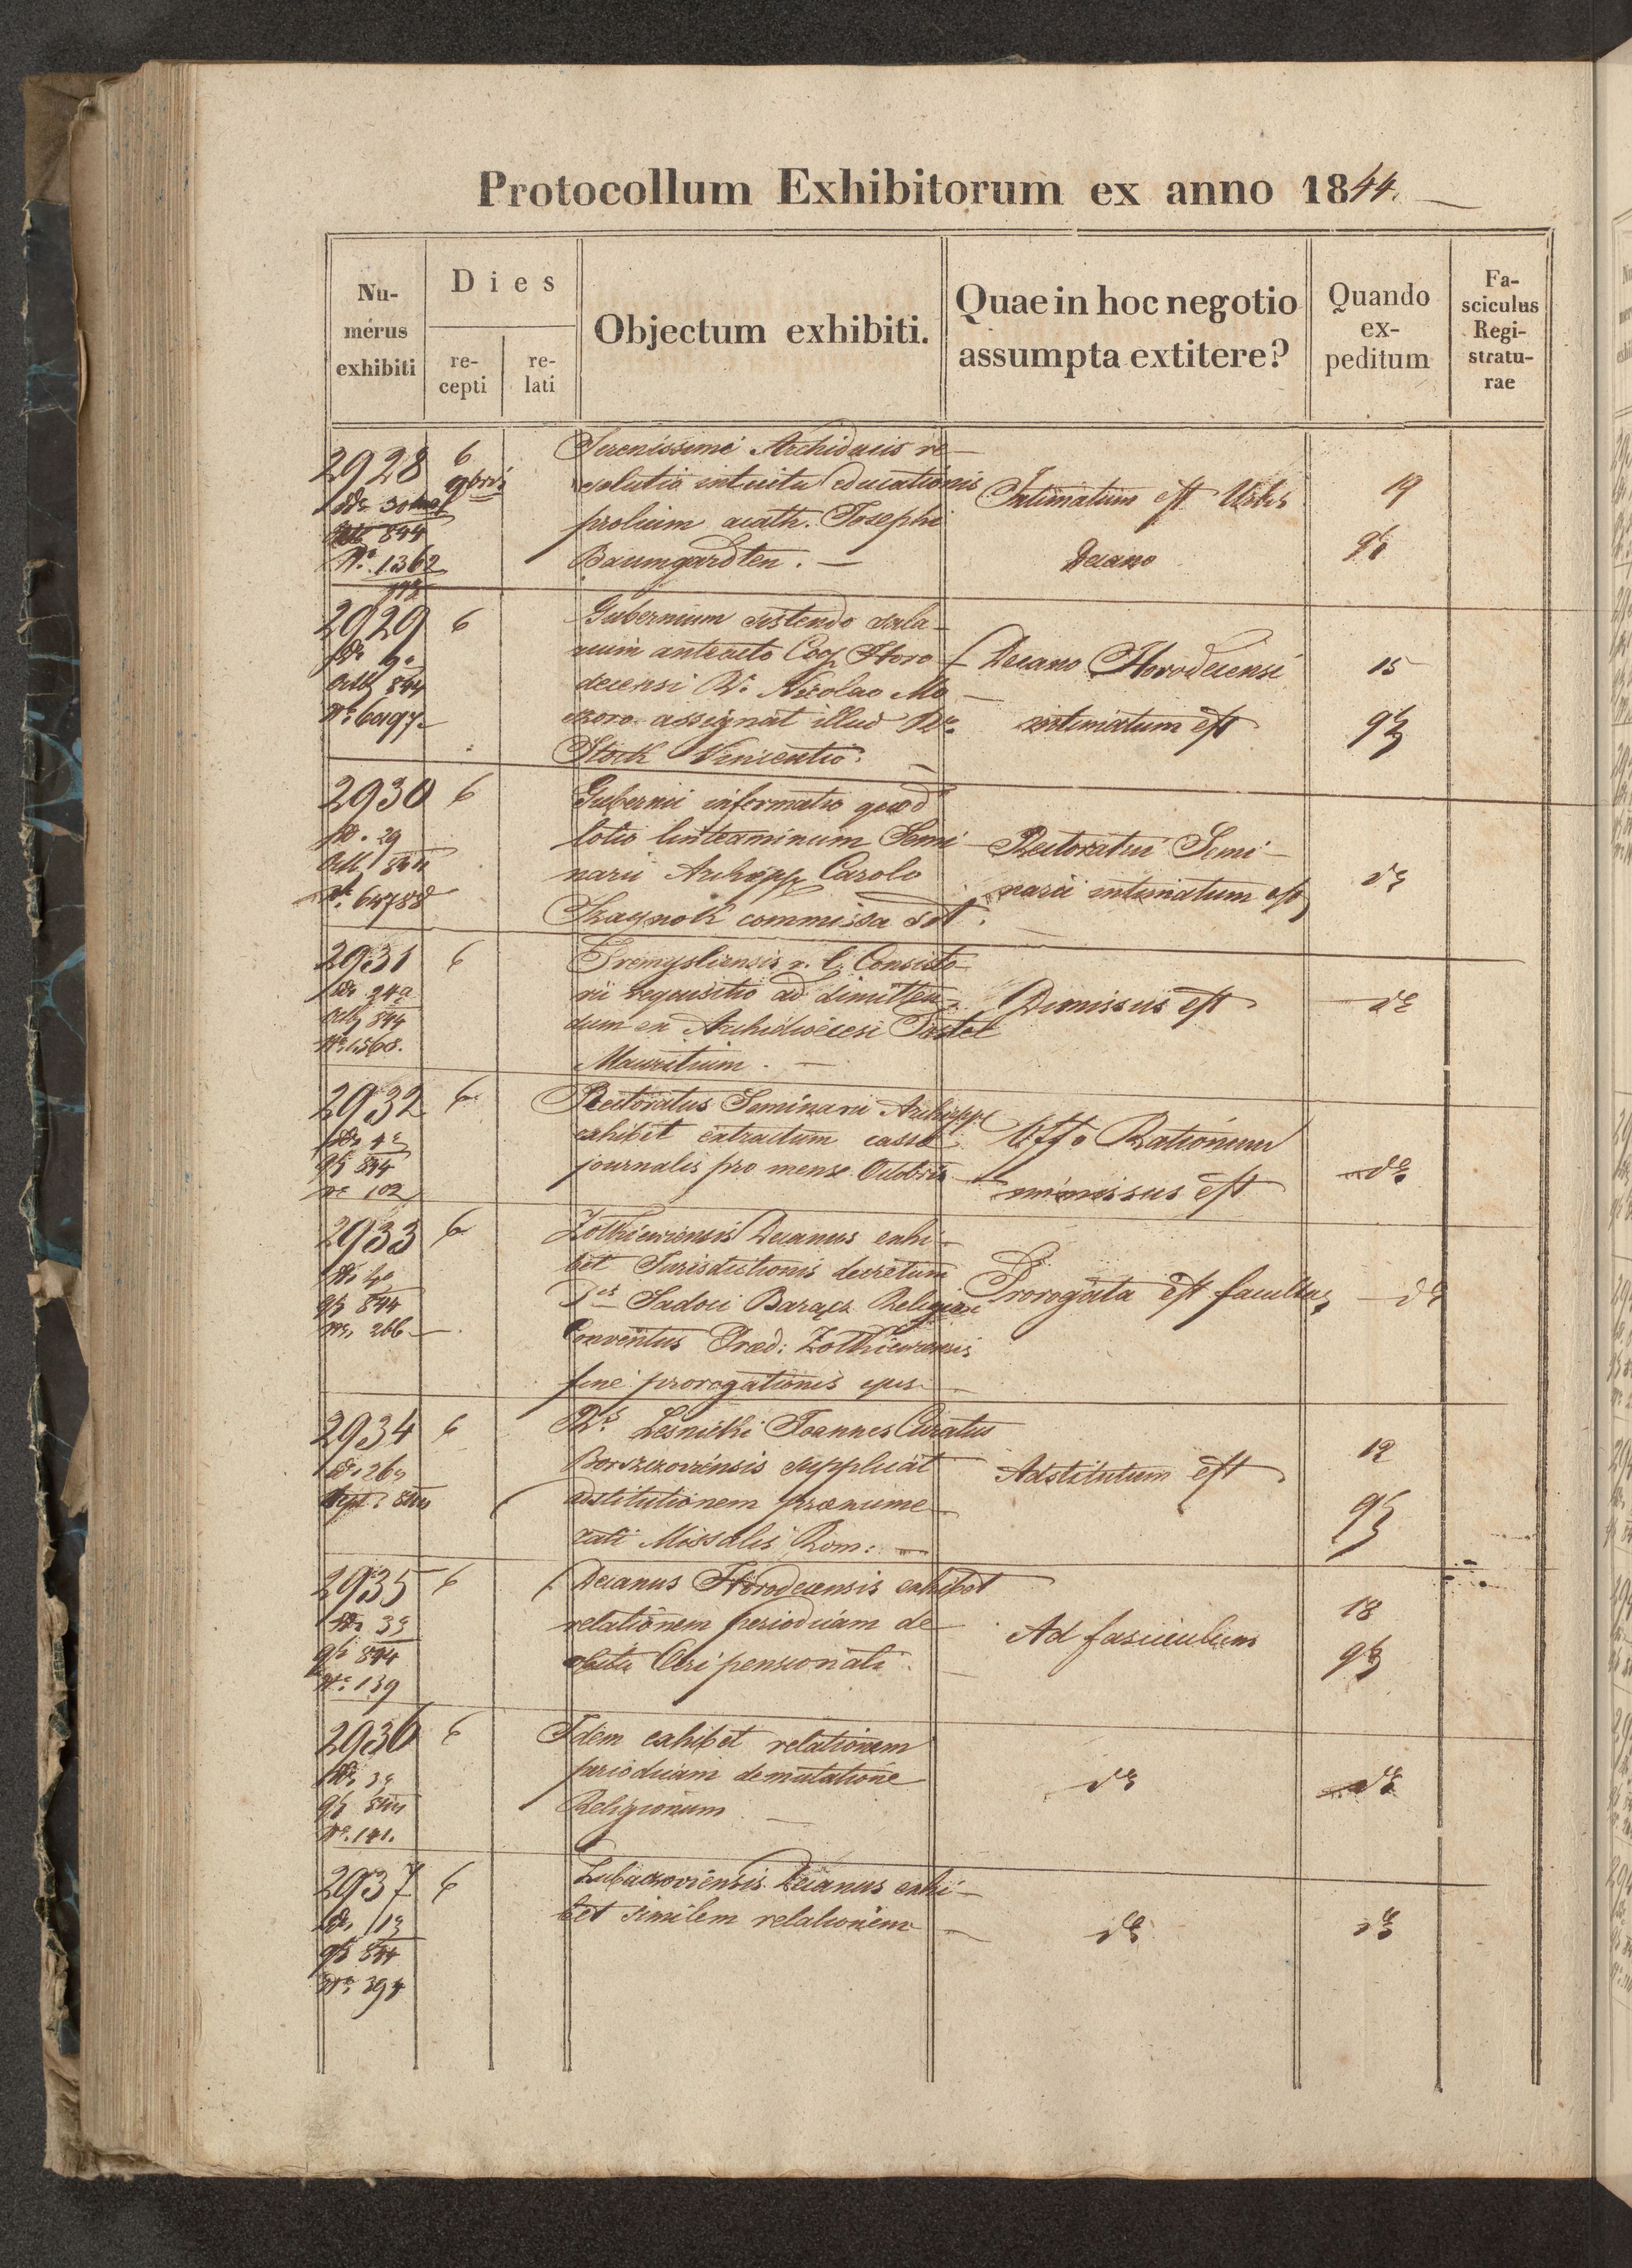 Protocollum Exhibitorum ex anno 1844.
Nu-
merus
exhibiti
Dies
re-
cepti
re-
lati
Objectum exhibiti.
Quae in hoc negotio
assumpta extitere?
Quando
ex-
peditum
Fa-
sciculus
Regi-
stratu-
rae
2928
844
Nr. 1362
6
9bris
Serenissimi Archiducis re-
solutio intuitu educationis
prolium acath. Josephi
Baumgardten. —
Intimatum est
Decano
19
9b
2929
844
6
Gubernium sistendo sala-
rium anteacto Coop Horo-
decensi Nicolao Mo-
assignat illud
Stock Vincentio.
Decano Horodecensi
intimatum est
15
9b
2930
29
844
Nr. 64788
6
Gubernii informatio quod
lotio linteaminum Semi-
narii Archiepp Carolo
commissa sit.
Rectoratui Semi-
narii intimatum est
do
2931
24
844
6
Premysliensis r. l. Consisto-
rii requisitio ad dimitten-
dum ex Archidioecesi Pastel
Mauritium. —
Dimissus est
do
2932
4
9b 844
Nr 102
6
Rectoratus Seminarii Archiepp
exhibet extractum cassae
journalis pro mense Octobris
Offo Rationum
missus est
do
2933
9b 844
Nr. 266
6
Zolkiewiensis Decanus exhi-
bet Jurisdictionis decretum
Sadoci Barącz Religiosi
Conventus Praed: Zolkiewiensis
fine prorogationis ejus
Prorogata est facultas
do
2934
26
Sept. 844
6
Lesnicki Joannes Curatus
supplicat
adstitutionem praenume-
rati Missalis Rom: —
Adstitutum est
12
9b
2935
3
9b 844
Nr. 139
6
Decanus Horodecensis exhibet
relationem periodicam de
obitu Cleri pensionati.
Ad fasciculum
18
9b
2936
3
9b 844
Nr. 141.
6
Idem exhibet relationem
periodicam de mutatione
Religionum
do
do
2937
9b 844
Nr. 394
6
Lubaczoviensis Decanus exhi-
bet similem relationem
do
do